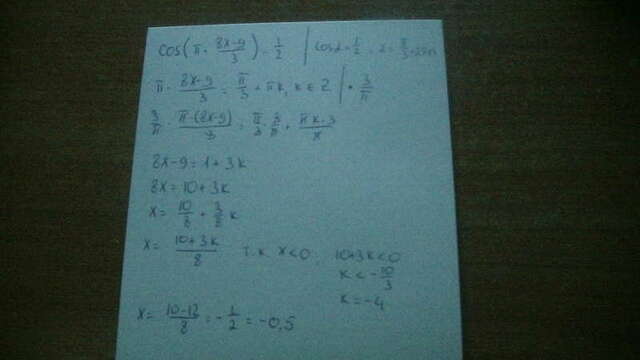 cos(π · (8x-9)/3) = 1/2 | cos α = 1/2, α = π/3 + 2πn
π · (8x-9)/3 = π/3 + πk, k ∈ Z | · 3/π
3/π · π·(8x-9)/3 = π/3 · 3/π + πk·3/π
8x-9 = 1 + 3k
8x = 10 + 3k
x = 10/8 + 3/8 k
x = (10+3k)/8 т.к. x<0, 10+3k<0
k < -10/3
k = -4
x = (10-12)/8 = -1/2 = -0,5